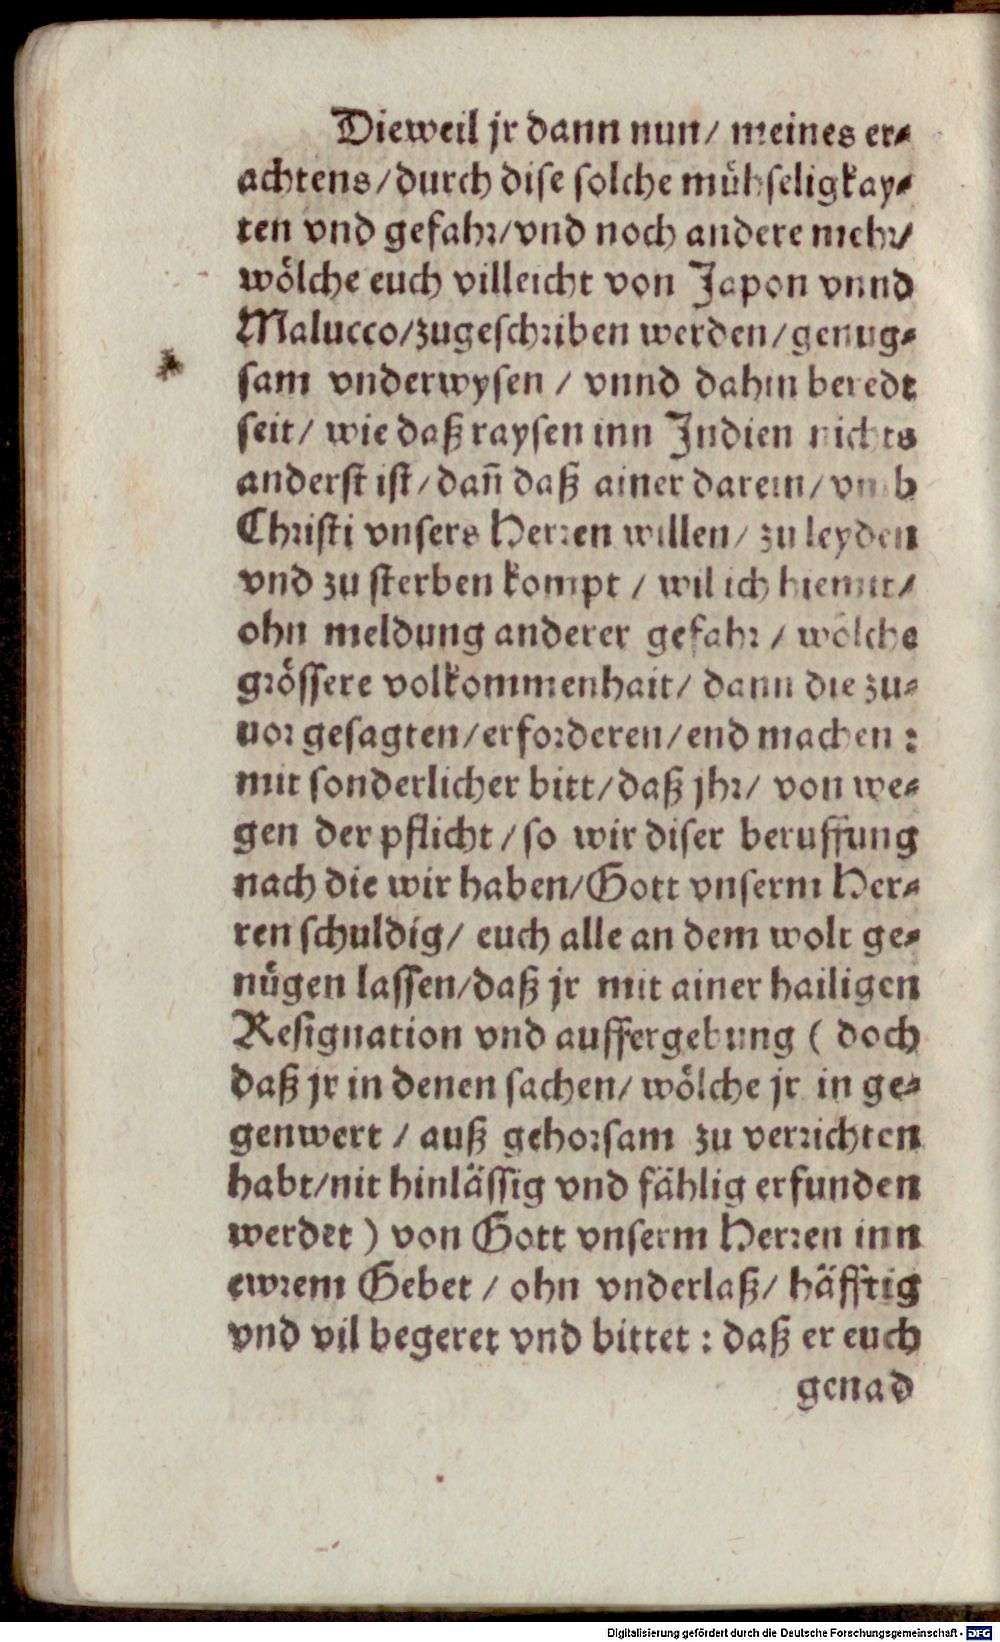 Dieweil jr dann nun/ meines er-
achtens/durch dise solche mühseligkay-
ten vnd gefahr/vnd noch andere mehr/
wölche euch villeicht von Japon vnnd
Malucco/zugeschriben werden/genug-
sam vnderwysen / vnnd dahin beredt
seit/ wie daß raysen inn Indien nichts
anderst ist/dañ daß ainer darein/vmb
Christi vnsers Herren willen/ zu leyden
vnd zu sterben kompt / wil ich hiemit/
ohn meldung anderer gefahr / wölche
grössere volkommenhait/ dann die zu-
uor gesagten/erforderen/end machen :
mit sonderlicher bitt/daß jhr/ von we-
gen der pflicht/so wir diser beruffung
nach die wir haben/Gott vnserm Her-
ren schuldig/ euch alle an dem wolt ge-
nügen lassen/daß jr mit ainer hailigen
Resignation vnd auffergebung ( doch
daß jr in denen sachen/ wölche jr in ge-
genwert / auß gehorsam zu verrichten
habt/nit hinlässig vnd fählig erfunden
werdet ) von Gott vnserm Herren inn
ewrem Gebet / ohn vnderlaß/ häfftig
vnd vil begeret vnd bittet : daß er euch
genad
Digitalisierung gefördert durch die Deutsche Forschungsgemeinschaft - DFG